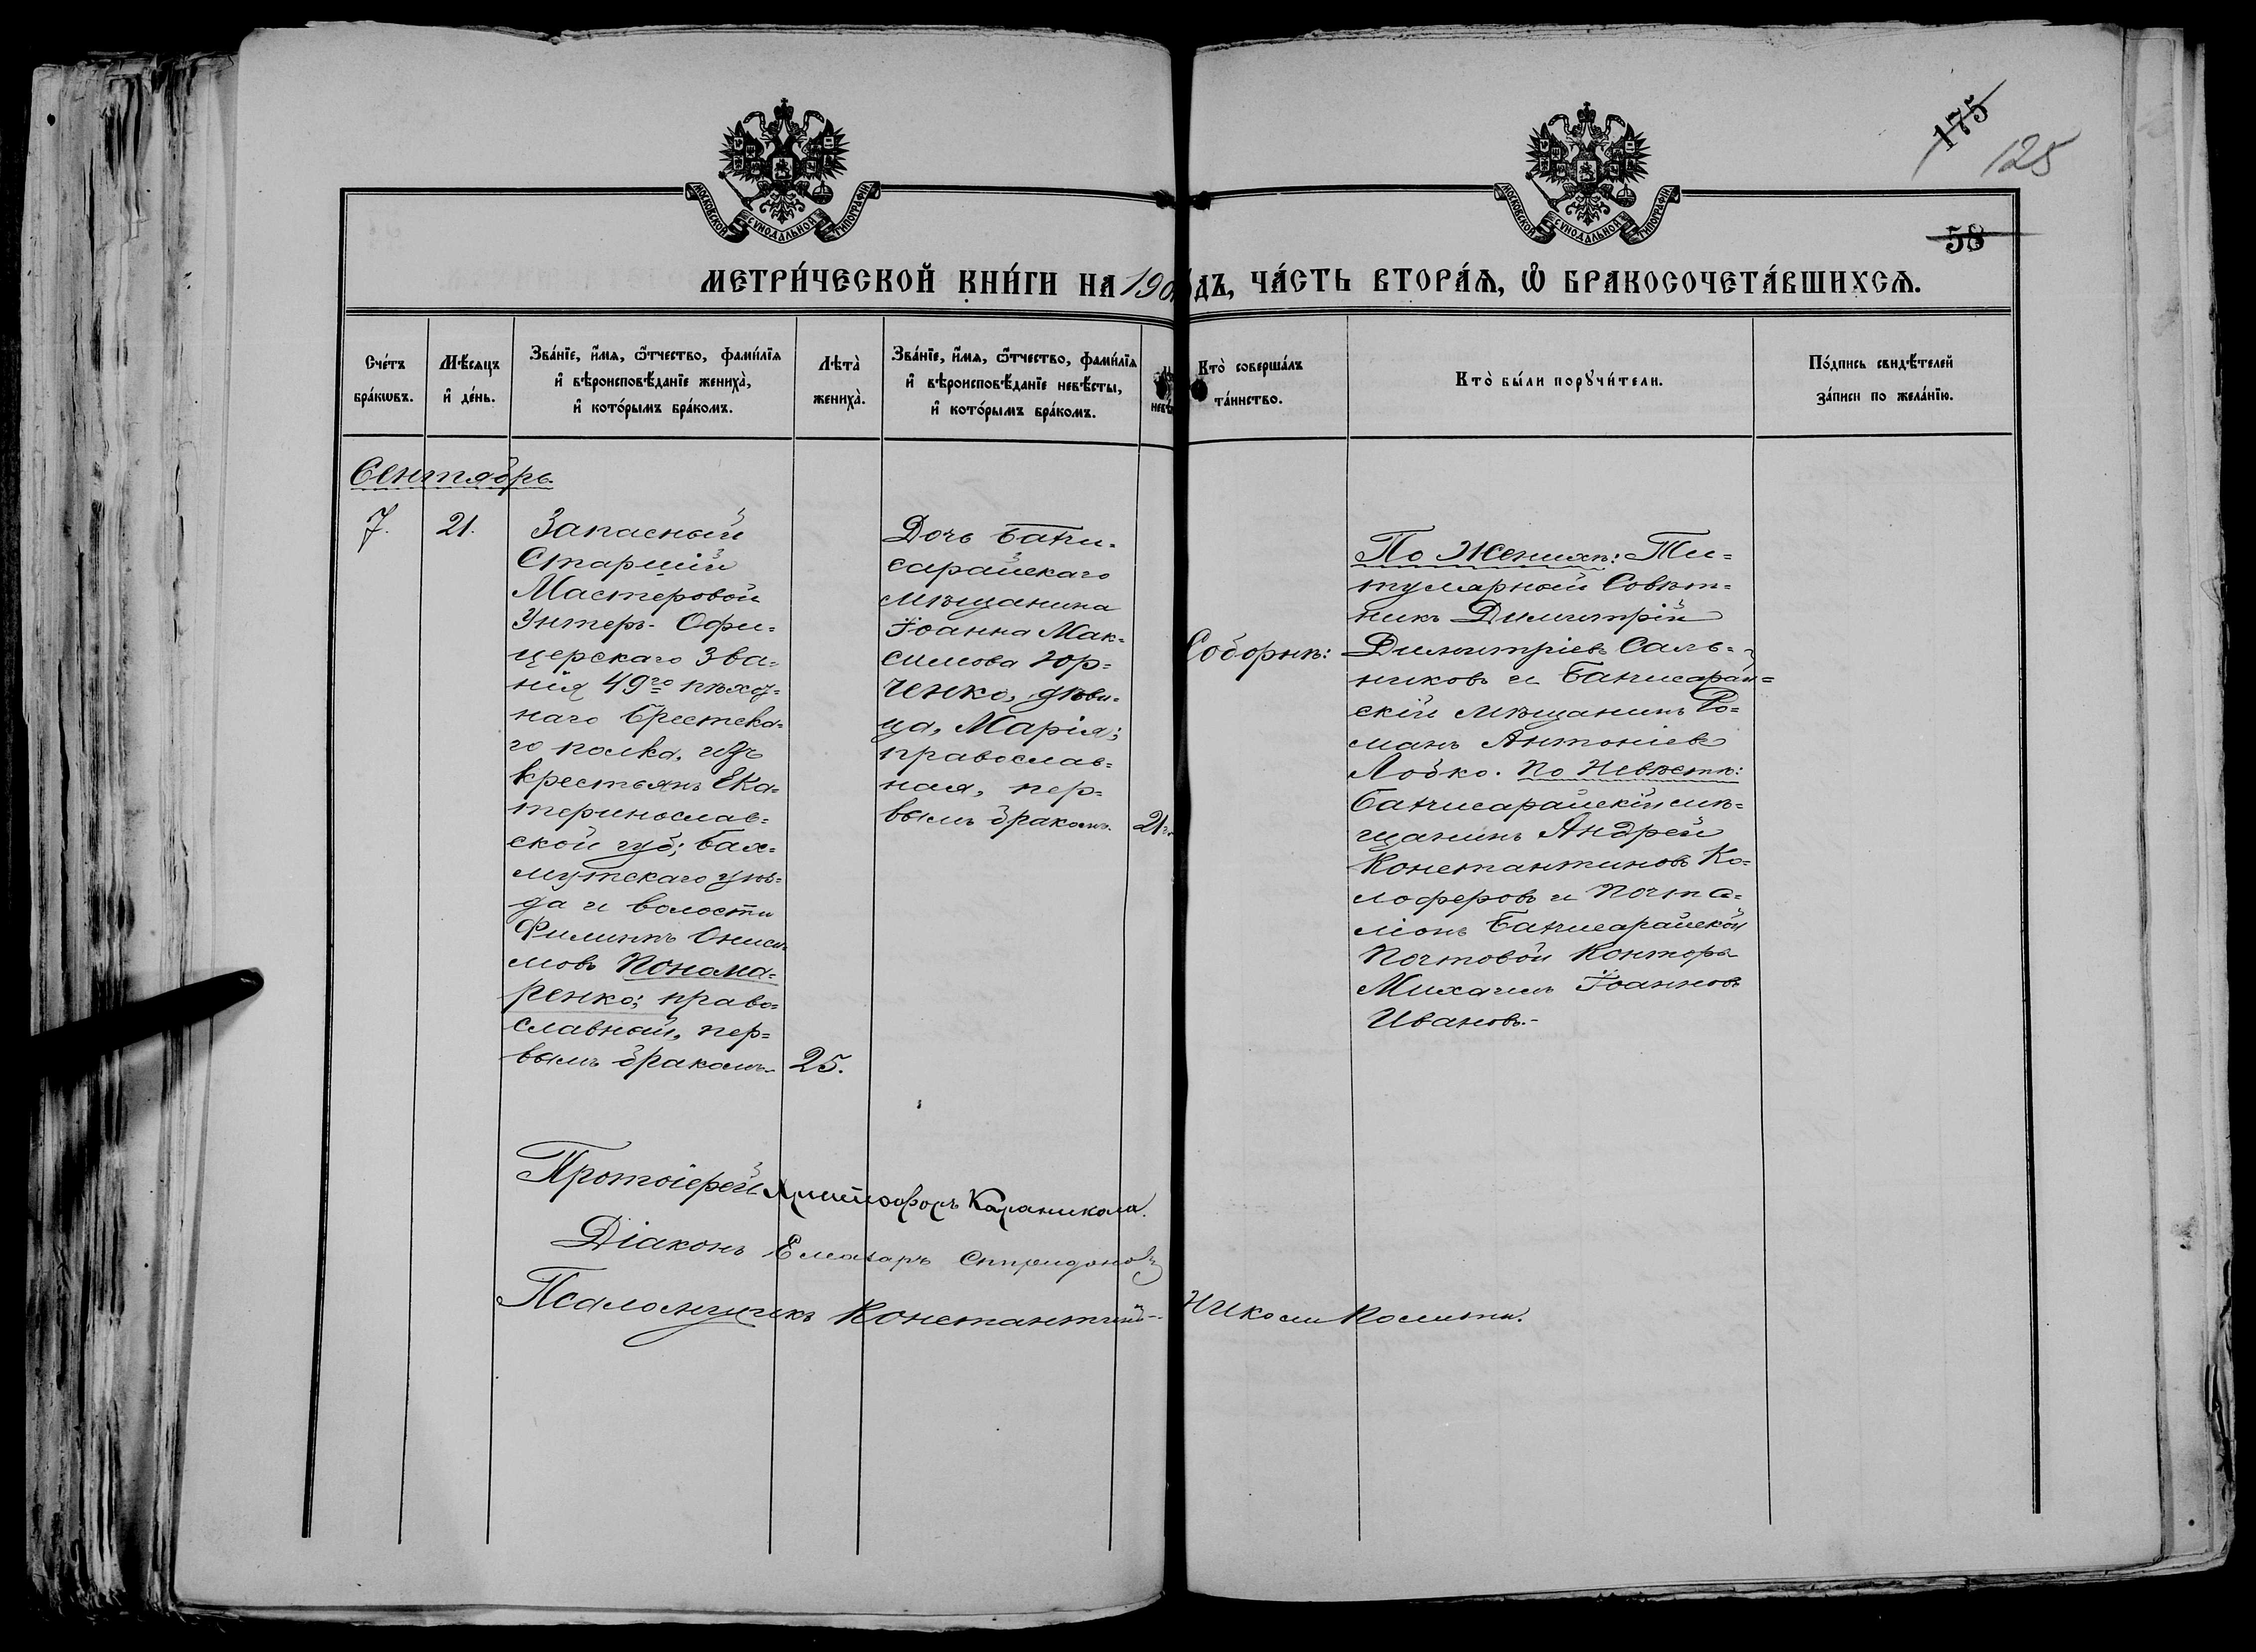 175
125
МОСКОВСКОЙ СѴНОДАЛЬНОЙ ТИПОГРАФІИ
МОСКОВСКОЙ СѴНОДАЛЬНОЙ ТИПОГРАФІИ
58
МЕТРИ́ЧЕСКОЙ КНИ́ГИ НА 190 ДЪ, ЧА́СТЬ ВТОРА́Я, Ѽ БРАКОСОЧЕТА́ВШИХСЯ.
Сче́тъ
бра́кωвъ.
Мѣ́сяцъ
и҆ де́нь.
Зва́нїе, и҆́мя, ѻ҆́тчество, фами́лїя
и҆ вѣроисповѣ́данїе женихà,
и҆ кото́рымъ бра́комъ.
Лѣтà
женихà.
Зва́нїе, и҆́мя, ѻ҆́тчество, фами́лїя
и҆ вѣроисповѣ́данїе невѣ́сты,
и҆ кото́рымъ бра́комъ.
Ктò соверша́лъ
та́инство.
Ктò бы́ли порꙋчи́тели.
По́дпись свидѣ́телей
за́писи по жела́нїю.
Сентябрь.
7.
21.
Запасный
Старшій
Мастеровой
Унтеръ-Офи=
церскаго Зва=
нія 49го пѣхот=
наго Брестска=
го полка, изъ
крестьянъ Ека=
теринослав=
ской губ; Бах=
мутскаго уѣз=
да и волости
Филиппъ Ониси
мовъ Понома=
ренко; право=
славный, пер=
вымъ бракомъ.
25.
Дочь Бахчи=
сарайскаго
мѣщанина
Іоанна Мак=
симова Юр=
ченко, дѣви=
ца, Марія;
православ=
ная, пер=
вымъ бракомъ.
21
Соборнѣ:
По Женихѣ: Ти=
тулярный Совѣт=
никъ Димитрій
Димитріевъ Саль=
никовъ и Бахчисарай=
скій мѣщанинъ Ро=
манъ Антоніевъ
Лобко. По Невѣстѣ:
Бахчисарайскій мѣ=
щанинъ Андрей
Константиновъ Ко=
лоферовъ и Почта=
ліонъ Бахчисарайской
Почтовой Конторы
Михаилъ Іоанновъ
Ивановъ.-
Протоіерей Христофоръ Караникола.
Діаконъ Елеазаръ Спиридоновъ
Псаломщикъ Константинъ Николи